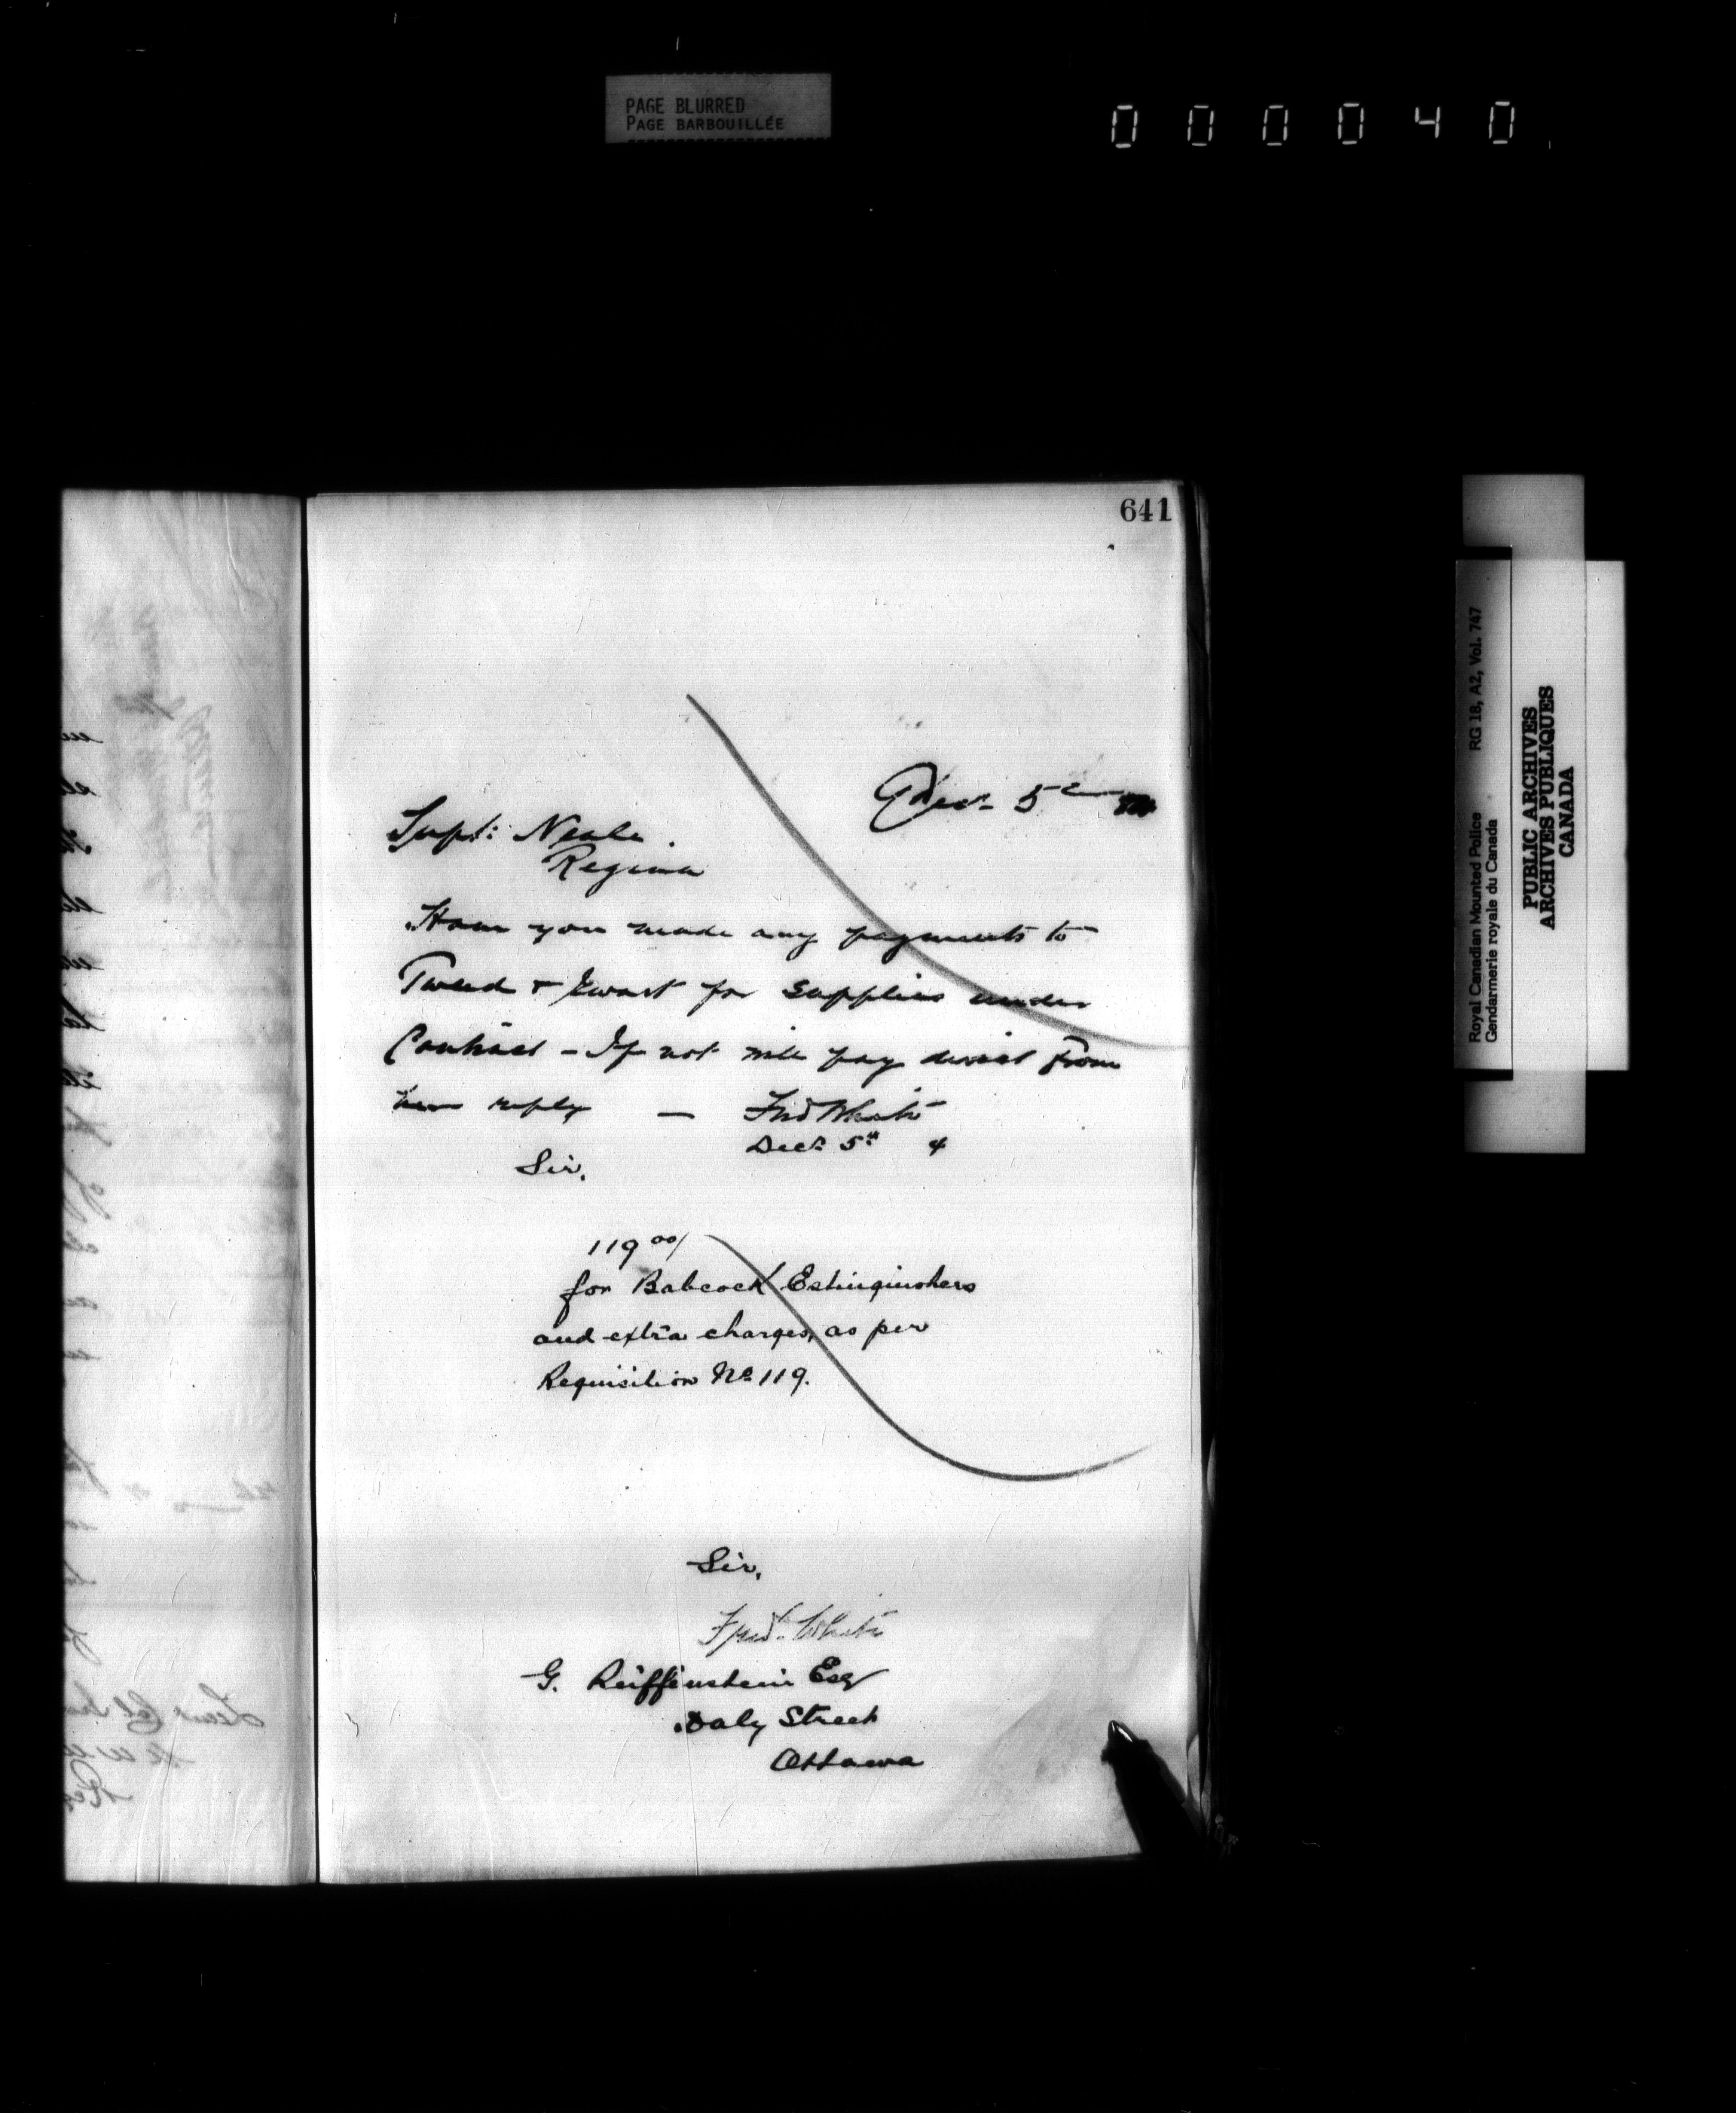 PAGE BLURRED
PAGE BARBOUILLÉE
0 0 0 0 4 0
641
Dec. 5
Supt: Neale
Regina
Have you made any payments to
Tweed & Ewart for supplies under
Contract - If not will pay direct from
here reply — Fred White
Decr 5th 4
Sir,
119 00/
for Babcock Extinguishers
and extra charges, as per
Requisition No 119.
Sir,
Fred. White
G. Reiffenstein Esq
Daly Street
Ottawa
Royal Canadian Mounted Police RG 18, A2, Vol. 747
Gendarmerie royale du Canada
PUBLIC ARCHIVES
ARCHIVES PUBLIQUES
CANADA